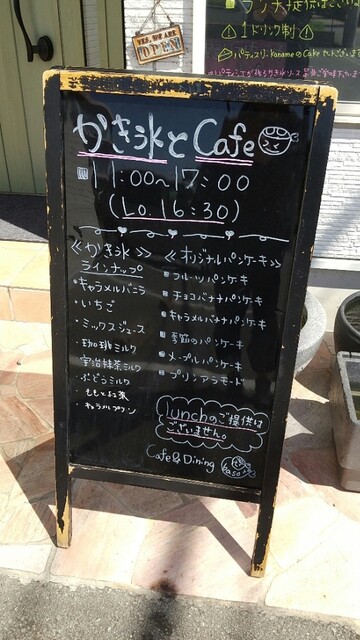 YES, WE ARE
OPEN
①ドリンク制
パティスリー KanameのCake
かき氷とCafe
11:00〜17:00
(Lo. 16:30)
≪かき氷≫
ラインナップ
・キャラメルバニラ
・いちご
・ミックスジュース
・珈琲ミルク
宇治抹茶ミルク
・ぶどうミルク
≪オリジナルパンケーキ≫
フルーツパンケーキ
チョコバナナパンケーキ
キャラメルバナナパンケーキ
季節のパンケーキ
メープルパンケーキ
プリンアラモード
lunchのご提供は
ございません。
Cafe&Dining